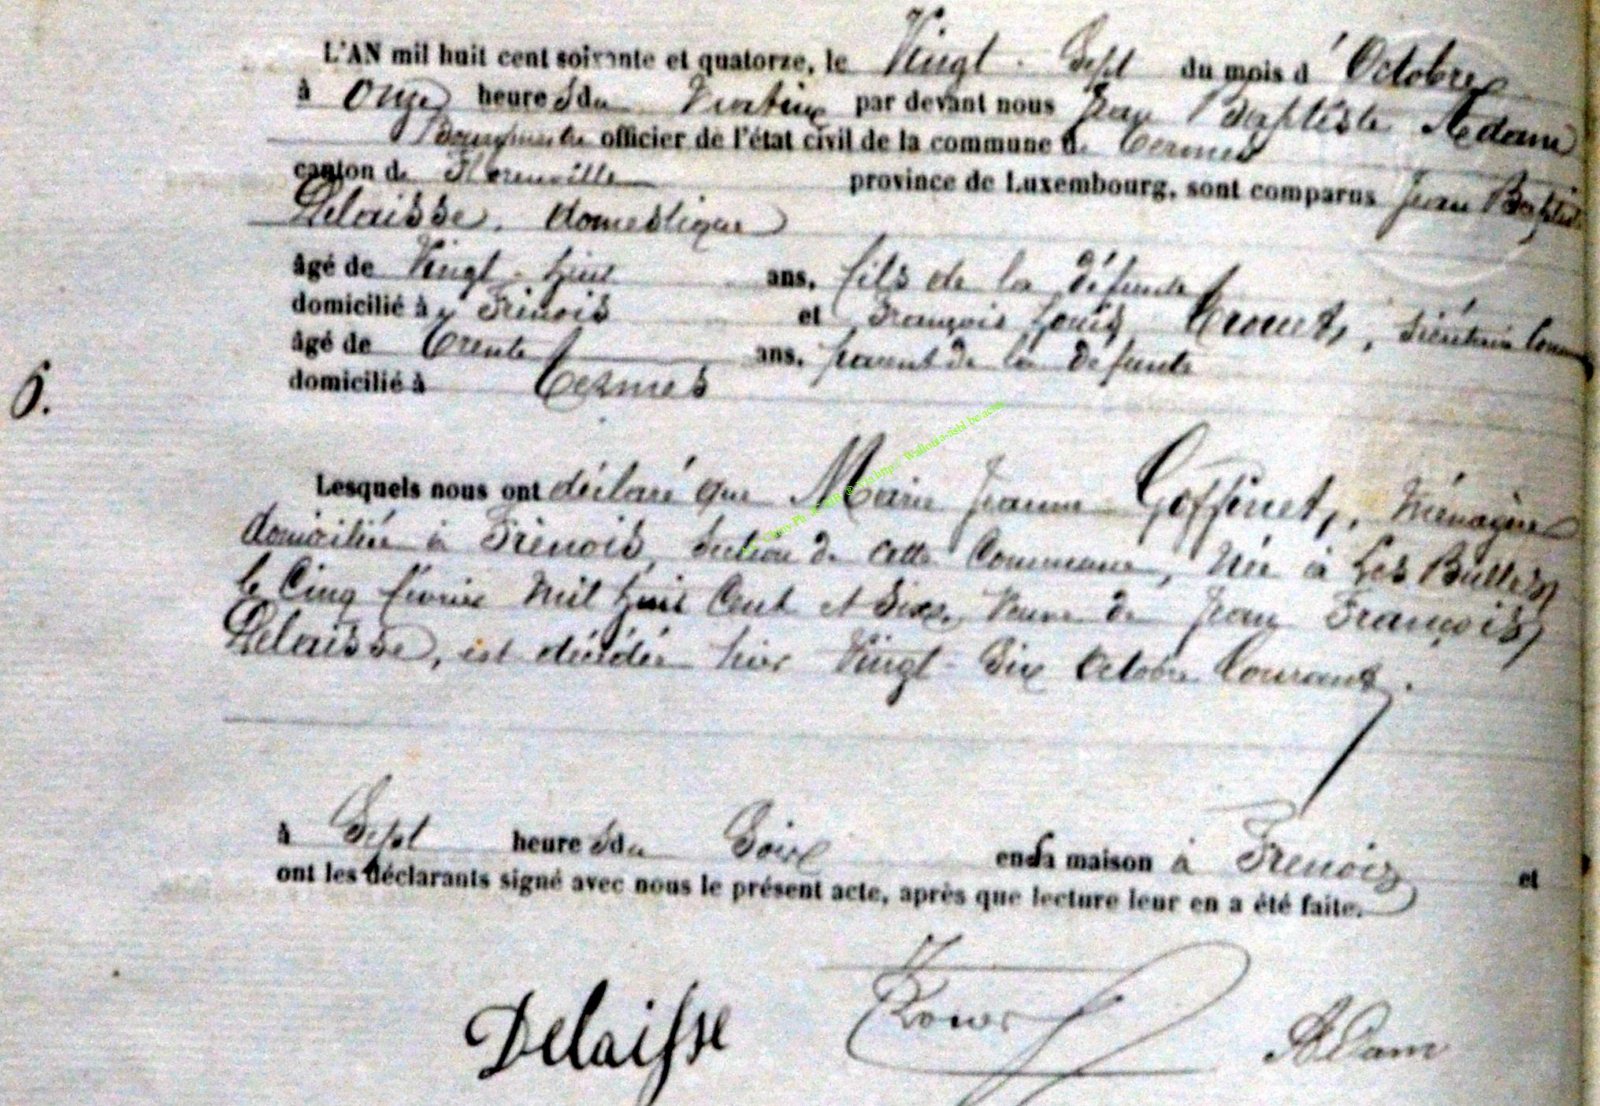 L'AN mil huit cent soixante et quatorze, le Vingt-Sept du mois d'Octobre
à Onze heures du Matin par devant nous Jean Baptiste Adam
Bourgmestre officier de l'état civil de la commune de Termes
canton de Florenville province de Luxembourg, sont comparus Jean Baptiste
Delaisse, domestique
âgé de Vingt-huit ans, fils de la défunte
domicilié à Frenois et François Louis, secrétaire Com
âgé de Trente ans, parent de la défunte
domicilié à Termes
6.
Lesquels nous ont déclaré que Marie Jeanne Goffinet, Ménagère
domiciliée à Frenois, Section de cette Commune, Née à Les Bulles
le Cinq février Mil huit Cent et Six, Veuve de Jean François
Delaisse, est décédée hier Vingt-Six Octobre Courant.
à Sept heures du Soir en sa maison à Frenois et
ont les déclarants signé avec nous le présent acte, après que lecture leur en a été faite.
Delaisse Adam